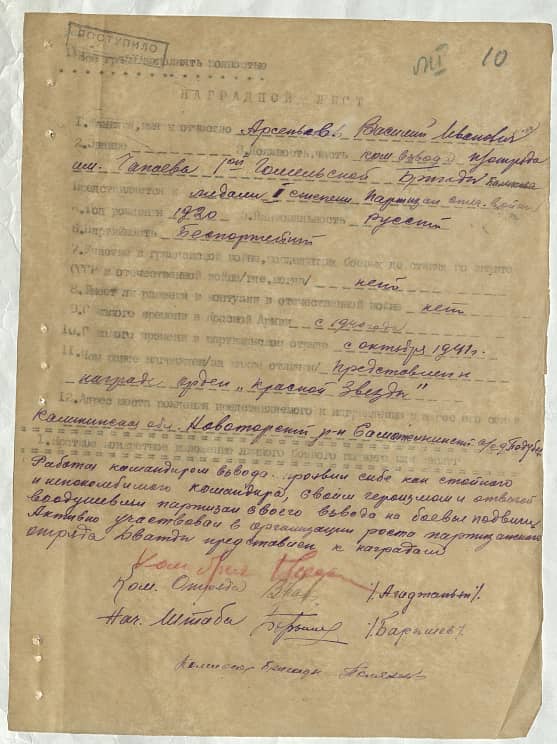 ПОСТУПИЛО
10
НАГРАДНОЙ ЛИСТ
1. Фамилия, имя и отчество Арсеньев Василий Иванович
2. Звание 3. Должность, часть ком. взвода п/отряда
им. Чапаева 1ой Гомельской Бригады
Представляется к медали II степени Партизан отеч. войны
4. Год рождения 1920 5. Национальность Русский
6. Партийность Беспартийный
7. Участие в гражданской войне, последующих боевых действиях по защите
СССР и отечественной войне /где, когда/ нет
8. Имеет ли ранения и контузии в отечественной войне нет
9. С какого времени в Красной Армии с 1940 года
10. С какого времени в партизанском отряде с октября 1941 г.
11. Чем ранее награжден /за какие отличия/ Представлен к
награде орден "Красной Звезды"
12. Адрес места рождения представляемого к награждению и адрес его семьи
Калининская обл. Новоторский р-н
1. Краткое конкретное изложение личного боевого подвига или заслуг
Работая командиром взвода проявил себя как стойкого
и непоколебимого командира, своим героизмом и отвагой
воодушевлял партизан своего взвода на боевые подвиги
Активно участвовал в организации роста партизанского
отряда Дважды представлен к наградам
Ком. Отряда /Агаджанян/.
Нач. Штаба /Барышев/
Комиссар бригады